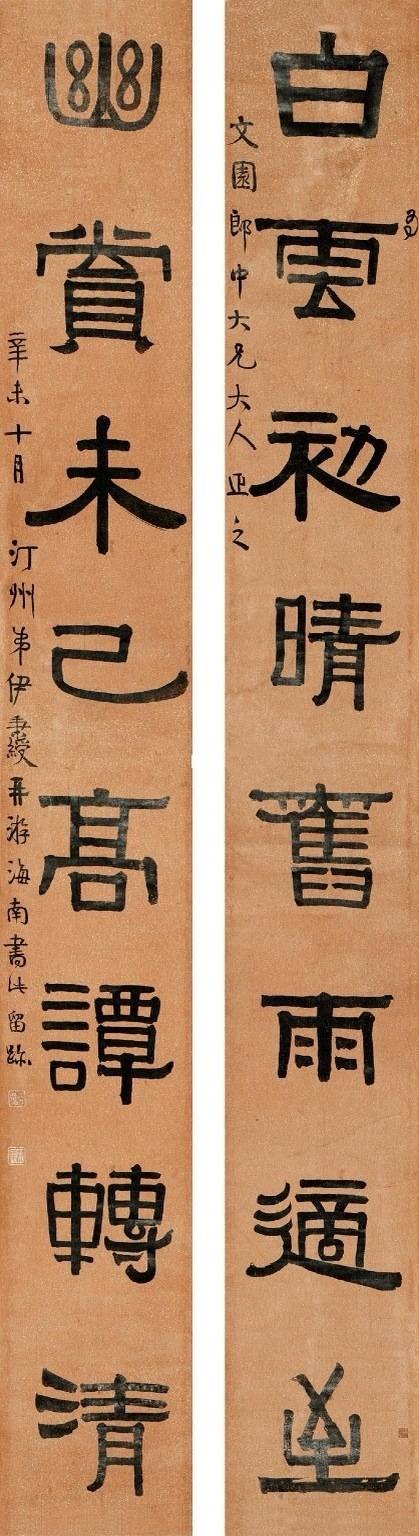 白雲初晴舊雨適至
文園郎中大兄大人正之
幽賞未已高譚轉清
辛未十月汀州弟伊秉綬再游海南書此留跡